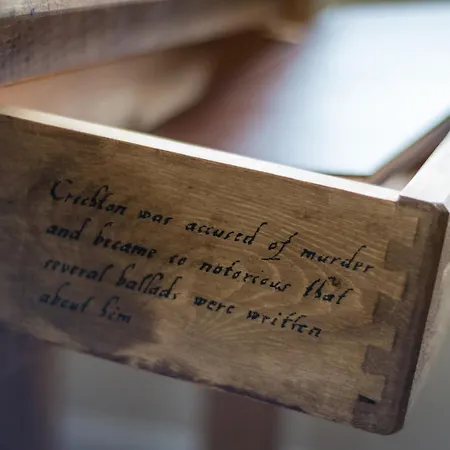 Crichton was accused of murder
and became so notorious that
several ballads were written
about him